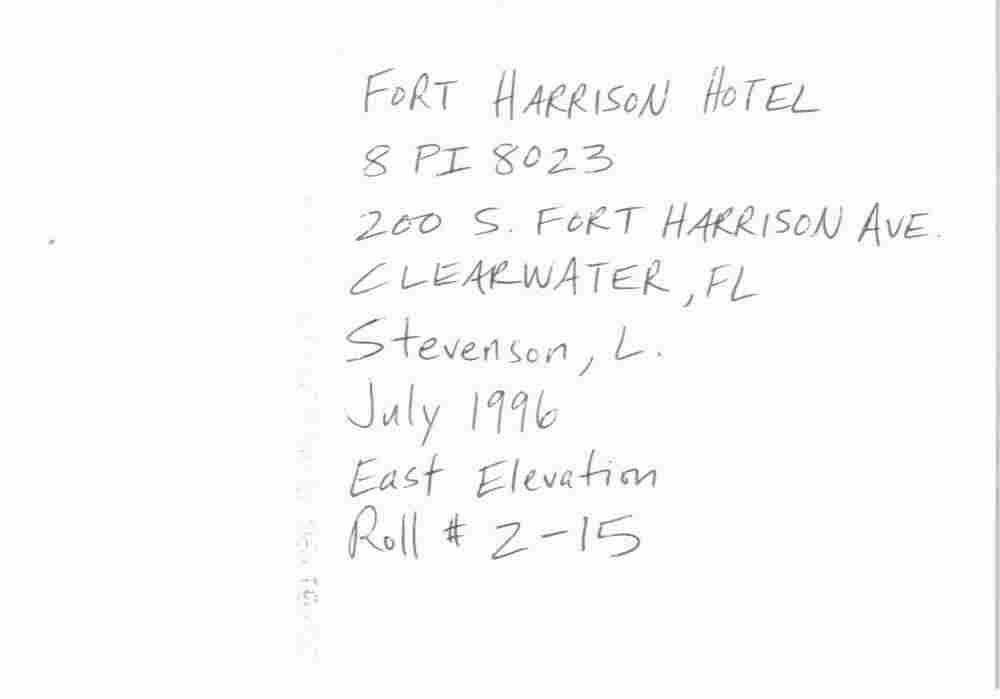 FORT HARRISON HOTEL
8 PI 8023
200 S. FORT HARRISON AVE.
CLEARWATER, FL
Stevenson, L.
July 1996
East Elevation
Roll # 2-15